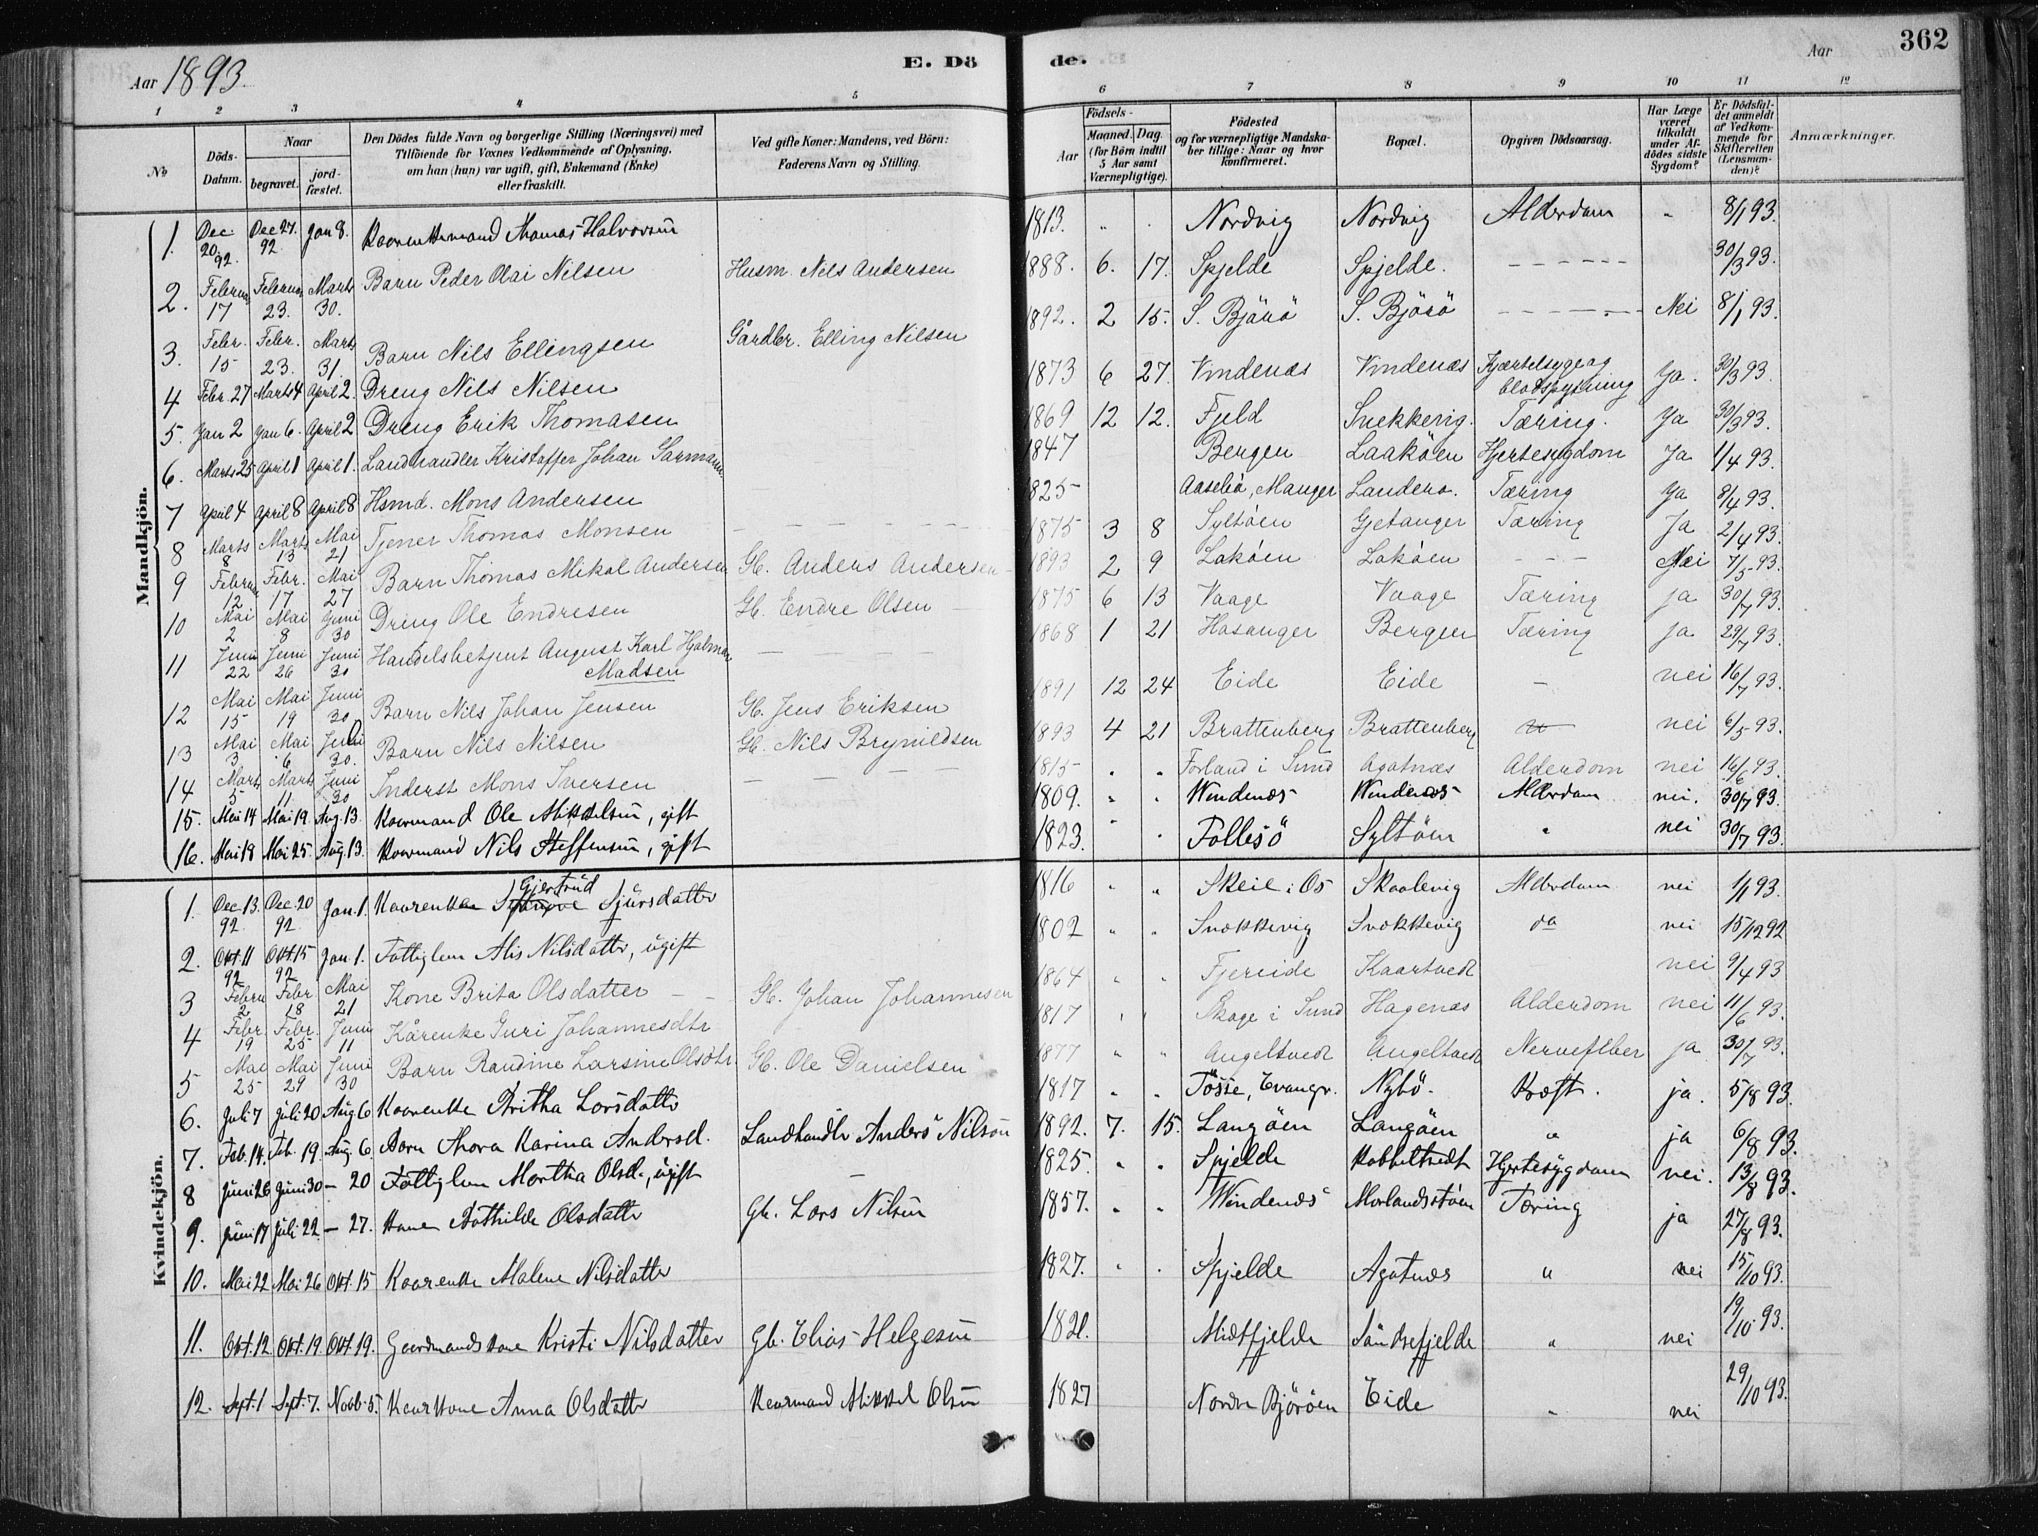 Aar 1893.
E. Dö
de.
Aar
362
1 2 3 4 5 6 7 8 9 10 11 12
No
Döds-Datum.
Naar
begravet.
jord-fæstet.
Den Dödes fulde Navn og borgerlige Stilling (Næringsvei) med
Tilföiende for Voxnes Vedkommende af Oplysning,
om han (hun) var ugift, gift, Enkemand (Enke)
eller fraskilt.
Ved gifte Koner: Mandens, ved Börn:
Faderens Navn og Stilling.
Födsels-
Aar
Maaned. Dag.
(for Börn indtil
5 Aar samt
Værnepligtige).
Födested
og for værnepligtige Mandska-
ber tillige: Naar og hvor
konfirmeret.
Bopæl.
Opgiven Dödsaarsag.
Har Læge
været
tilkaldt
under Af-
dödes sidste
Sygdom?
Er Dödsfal-
det anmeldt
af Vedkom-
mende for
Skifteretten
(Lensman-
den)?
Anmærkninger.
Mandkjön.
1. Dec. 20 92. Dec 27. 92. Jan 8. Kaarenkemand Thomas Halvorsen 1813. " . Nordvig Nordvig Alderdom " 8/1 93.
2. Februar 17 Februar 23. Marts 30. Barn Peder Olai Nilsen Husm. Nels Andersen 1888. 6. 17. Spjelde Spjelde. - - - - - - 30/3 93.
3. Febr. 15 Febr. 23. Marts 31. Barn Nils Ellingsen Gårdbr. Elling Nilsen 1892. 2 15. S. Björö S. Bjösö - - - - - - Nei 8/1 93.
4 Febr. 27 Marts 4 April 2. Dreng Nils Nilsen 1873 6 27. Vindenæs Vindenæs Kjertelsyge og blodspytning Ja. 30/3 93.
5. Jan 2 Jan 6. April 2 Dreng Erik Thomasen 1869 12 12. Fjeld Snekkevig. Tæring. Ja 30/3 93.
6. Marts 25 April 1 April 1. Landhandler Kristoffer Johan Garmann 1847 Bergen Laaköen Hjertesygdom Ja 1/4 93.
7 April 4 April 8 April 8 Hsmd. Mons Andersen 1825 Aasebö, Manger Landero. Tæring Ja 8/4 93.
8 Marts 8 Marts 13 Mai 21 Tjener Thomas Monsen - - - - - - 1875 3 8 Syltöen Gjetanger Tæring Ja 2/4 93.
9 Februar 12 Febr. 17 Mai 27 Barn Thomas Mikal Andersen Gb. Anders Andersen 1893 2 9 Lokøen Lokøen - - - Nei 7/5 93.
10 Mai 2 Mai 8 Juni 30 Dreng Ole Endresen Gb. Endre Olsen 1875 6 13 Vaage Vaage Tæring ja 30/7 93.
11 Juni 22 Juni 26 Juni 30 Handelsbetjent August Karl Hjalmar Madsen - - - - 1868 1 21 Hasanger Bergen Tæring ja 29/7 93.
12 Mai 15 Mai 19 Juni 30 Barn Nils Johan Jensen Gb. Jens Eriksen 1891 12 24 Eide Eide - nei 16/7 93.
13 Mai 3 Mai 6 Juni 30. Barn Nils Nilsen Gb. Nils Brynildsen 1893 4 21 Brattenberg Brattenberg nei 6/5 93.
14 Marts 5 Marts 11 Juni 30 Inderst Mons Iversen - - - - 1815 " " Forland i Sund Agatnæs Alderdom nei 16/6 93.
15. Mai 14 Mai 19. Aug. 13. Kaarmand Ole Mikkelsen, gift 1809. " " Windenæs Windenæs Alderdom nei. 30/7 93.
16. Mai 18 Mai 25. Aug. 13. Kaarmand Nils Steffensen, gift 1823. " . Follesö Syltöen " nei 30/7 93.
Kvindekjön.
1. Dec. 13. 92. Dec. 20 92. Jan. 1. Kaarenke Gjertrud Sjursdatter 1816 " " Skeie i Os Skaalevig Alderdom nei 1/1 93.
2. Okt. 11 92 Okt. 15 92 Jan. 1. Fattiglem Alis Nilsdatter, ugift 1802 " " Snekkevig Snekkevig do nei 15/12 92
3 Febru 2 Febr 18 Mai 21 Kone Brita Olsdatter - - Gb. Johan Johannesen 1864 " " Fjereide Kaartvedt nei 9/4 93
4 Febr 19 Febr. 25 Juni 11 Kårenke Guri Johannesdtr 1817 " " Skoge i Sund Hagenæs Alderdom nei 11/6 93.
5 Mai 25 Mai 29 Juni 30 Barn Raudine Larsine Olsdtr. Gb. Ole Danielsen 1877 " " Angeltvedt Angeltvedt Nervefeber ja 30/7 93.
6. Juli 7 Juli 20 Aug 6 Kaarenke Britha Larsdatter 1817 " " Tösse, Evangr. Nybö. Kræft. ja. 5/8 93.
7. Feb. 14. Feb. 19. Aug. 6. Barn Thora Karina Andersd. Landhandler Anders Nilsen 1892. 7. 15. Langöen Langöen " ja 6/8 93.
8 Juni 26 Juni 30 - 20 Fattiglem Martha Olsd., ugift - 1825. " " Spjelde Kobbeltvedt Hjertesygdom nei. 13/8 93.
9. Juni 17 Juli 22 - 27. Kone Bothilde Olsdatter Gb. Lars Nilsen 1857. " " Windenæs Morlandsstöen Tæring ja 27/8 93.
10. Mai 22 Mai 26 Okt. 15 Kaarenke Malene Nilsdatter 1827. " . Spjelde Agotnæs " nei 15/10 93.
11. Okt. 12 Okt. 19 Okt. 19. Gaardmandskone Kristi Nilsdatter Gb. Elias Helgesen 1821. Midtfjelde Söndrefjelde " nei 19/10 93.
12. Sept. 1 Sept. 7. Novb. 5. Kaarkone Anna Olsdatter Kaarmand Mikkel Olsen 1827 Nordre Björöen Eide " nei 29/10 93.